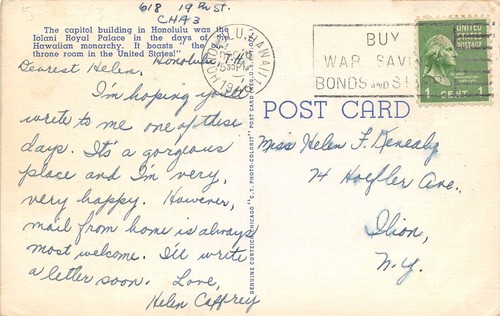 618 19th St.
CHA3
The capitol building in Honolulu was the
Iolani Royal Palace in the days of the
Hawaiian monarchy. It boasts "the
throne room in the United States!"
Honolulu
Dearest Helen,
I'm hoping you'll
write to me one of these
days. It's a gorgeous
place and I'm very,
very happy. However,
mail from home is always
most welcome. I'll write
a letter soon. Love,
Helen Caffrey
GENUINE CURTEICH-CHICAGO "C.T. PHOTO-COLORIT" POST CARD
HONOLULU, HAWAII
BUY
WAR SAVINGS
BONDS AND
1 CENT 1
POST CARD
Miss Helen F. Kenealy
74 Hoefler Ave.,
Ilion,
N.Y.